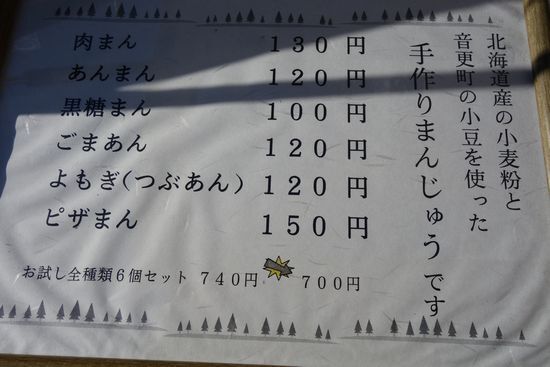 北海道産の小麦粉と
音更町の小豆を使った
手作りまんじゅうです
肉まん 130円
あんまん 120円
黒糖まん 100円
ごまあん 120円
よもぎ(つぶあん) 120円
ピザまん 150円
お試し全種類6個セット 740円 700円